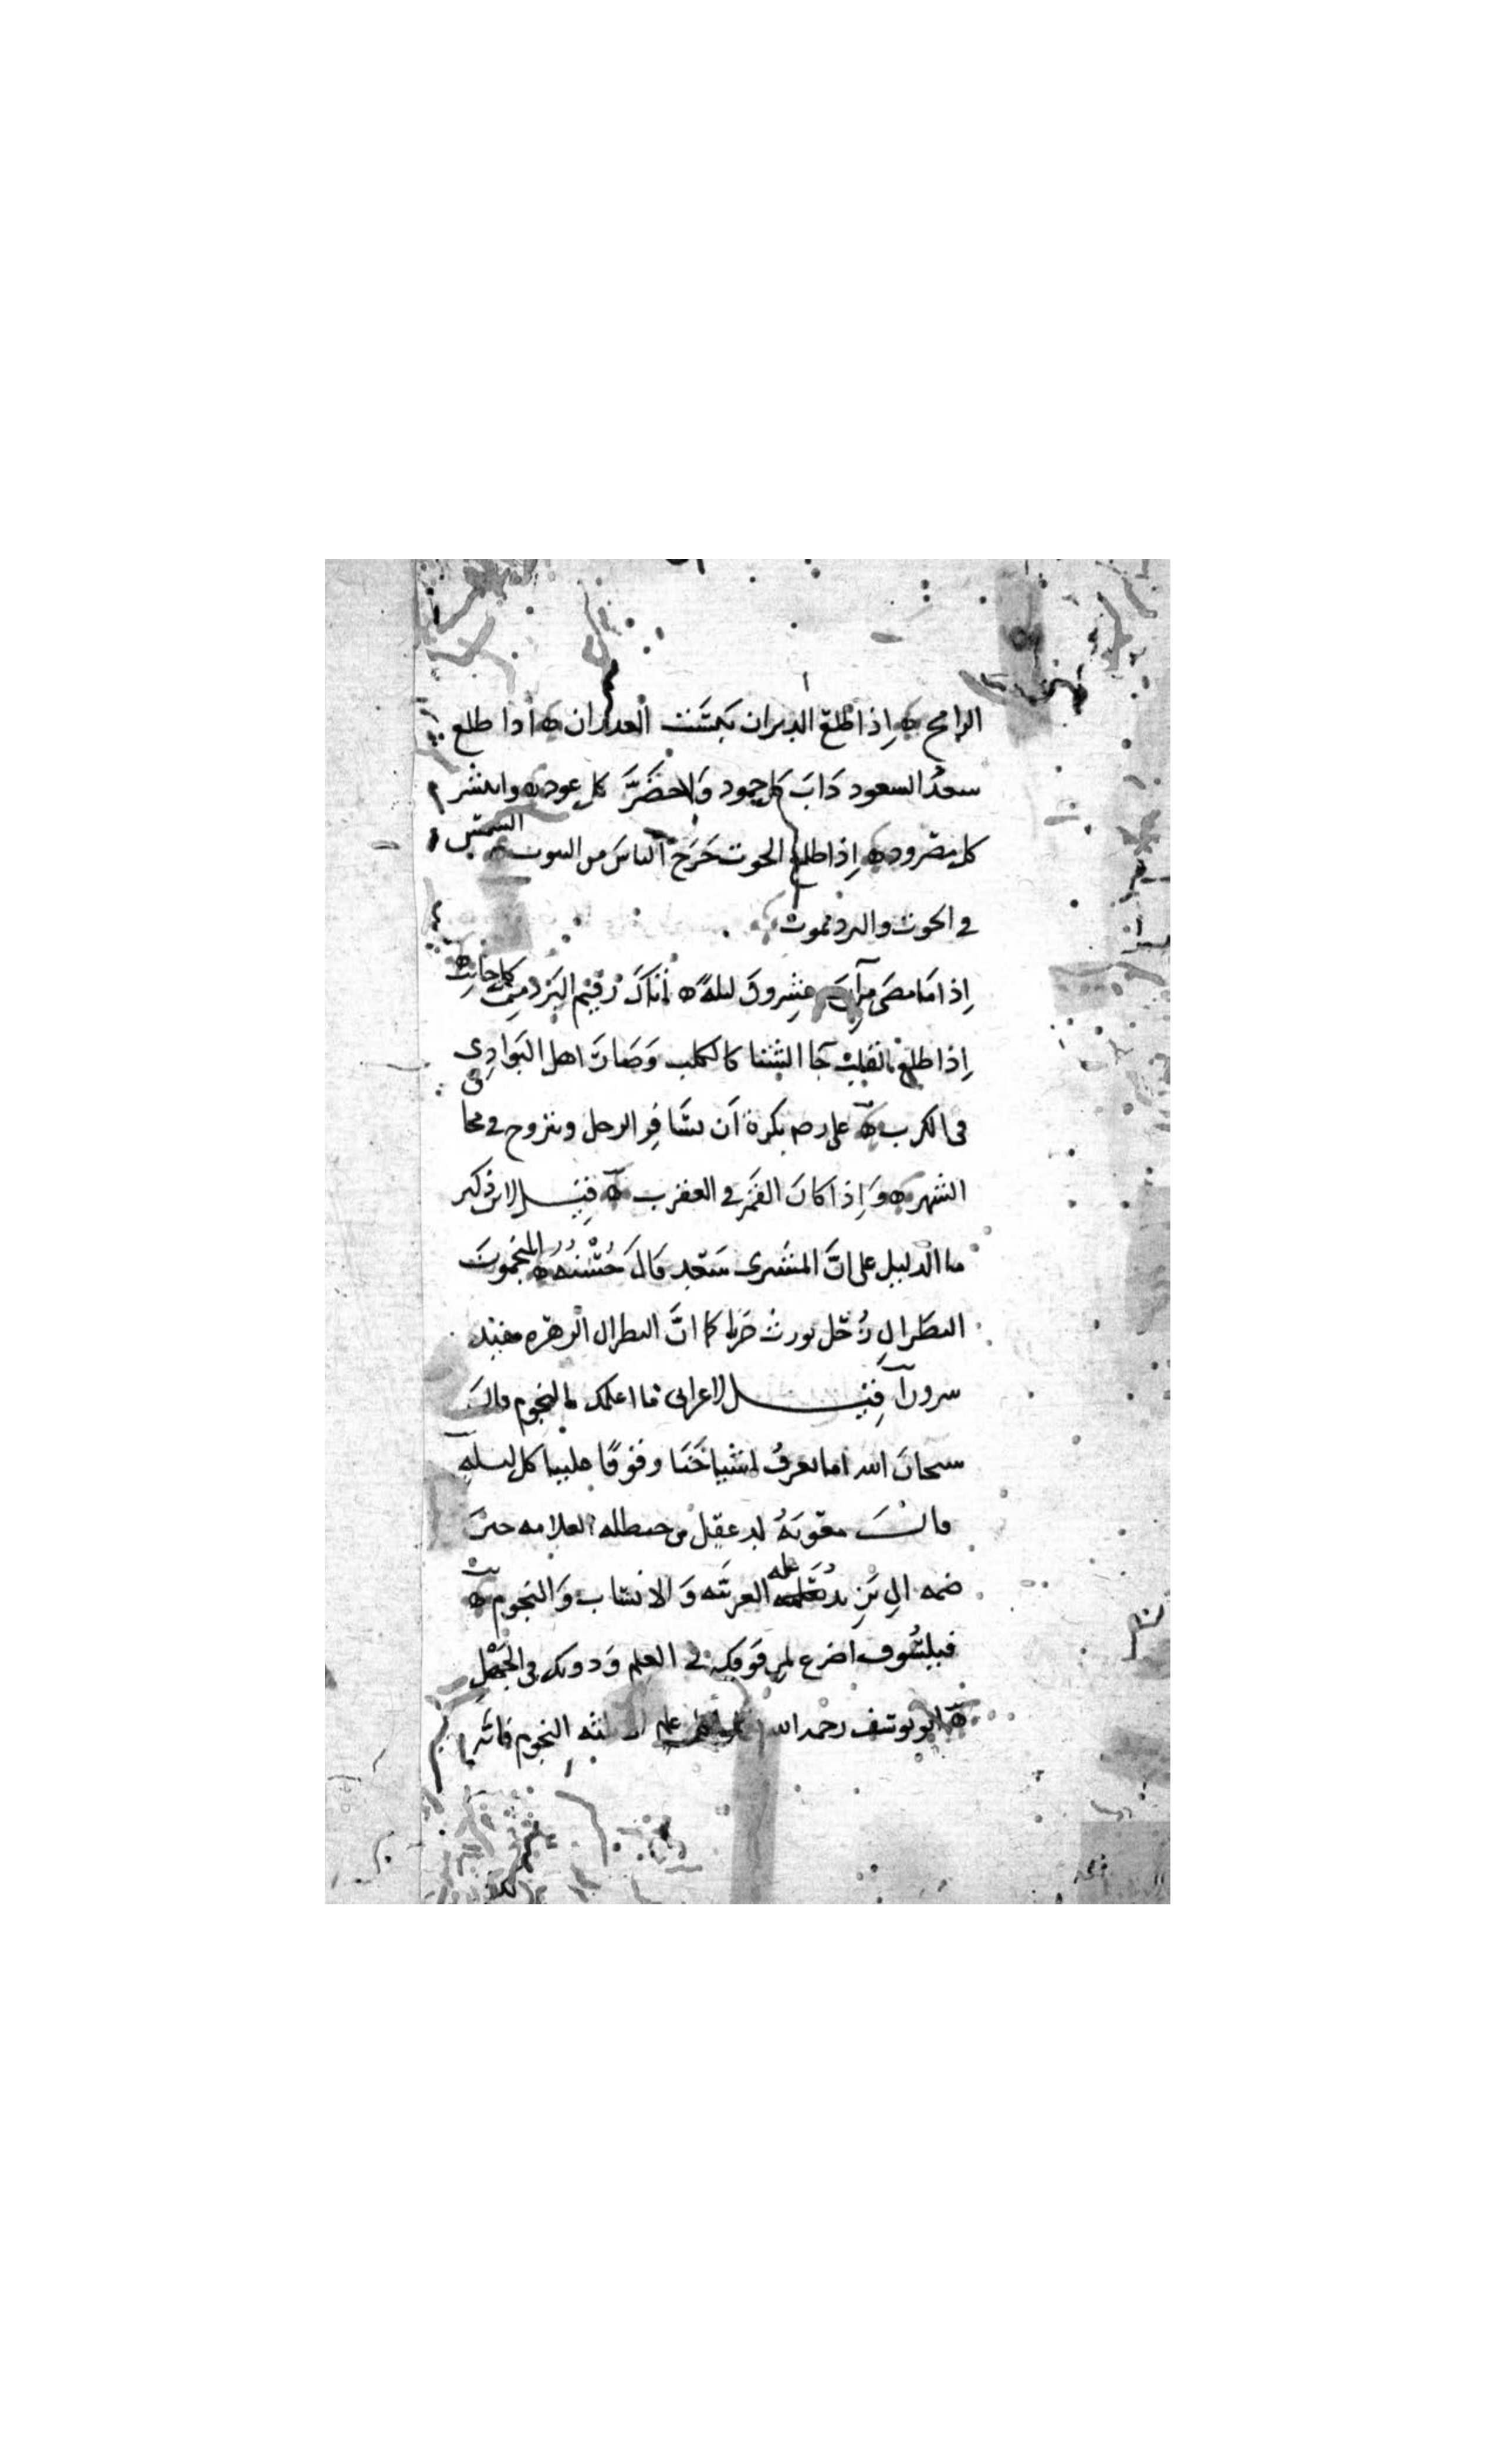 الرامح ه إذا طلع الدبران يَبِسَت الغدران ه اذا طلع
سعدُ السعود ذَابَ كل جمود وَاخضَرَّ كل عود ه وانتشر
كل مصرود ه إذا طلع الحوت خَرَجَ الناسَ من البيوت ه الشمس
في الحوت والبرد يموت
إذا مَا مضى مِن آب عشرونَ ليلةً ه أتاكَ رَقيم البَرد من كل جانبِ ه
إذا طلع القلبُ جَا الشتا كالكلب وَصَارَ اهل البَوادِى
فى الكرب ه على رضه يكره أن يسَافِر الرجل ويتزوج في محاق
الشهر ه وَإذا كانَ القَمَر في العقرب ه قِيل لابن ذكير
ما الدليل على انَّ المشترى سَعد قالَ حُسْنُهُ ه المنجمونَ
النظَر الى زُحَل يورث حَزنا كما انَّ النظر الى الزهره يفيد
سروراً قِيل لاعرابى ما اعلمك بالنجوم قالَ
سبحانَ الله اما نعرفُ اشياخَنَا وقوفًا علينا كل ليله
قالَ معَويَهُ لدغفل بن حنطله العلامه حين
ضمه الى يَزِيد عَلمه العربيّه وَالانسَاب وَالنجوم ه
فيلسُوف اخرع لمن فوقك في العلم وَدونك فى الجَهْلِ
ه ابو يوسف رحمه الله علم النجوم فانّه